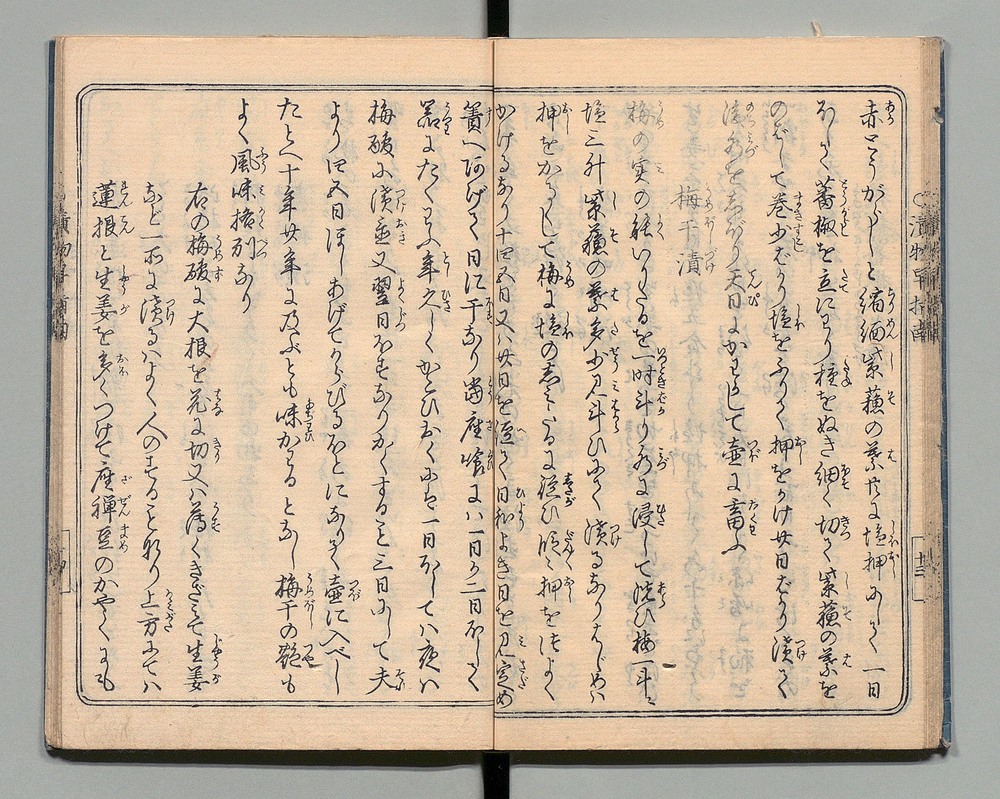 赤とうがらしと縮緬紫蘇の葉共に塩押にして一日
ほして蕃椒を立にわり種をぬき細く切て紫蘇の葉を
のばして巻少ばかり塩をふりて押をかけ廿日ばかり漬て
漬水をしぼり天日にかわかして壺に蓄ふ
梅干漬
梅の実の能いりたるを一時斗り水に浸して洗ひ梅一斗ニ
塩三升紫蘇の葉多少見斗ひにて漬るなりはじめハ
押をかるくして梅に塩のしみたるに従ひ順々押をつよく
かけるなり十四五日又ハ廿日を経て日和よき日を見定め
簀へあげて日に干なり当座喰にハ一日か二日ほして
器にたくハふ年久しくかこひおくにハ一日ほしてハ夜ハ
梅酸に漬置又翌日ほすなりかくすること三日にして夫
より四五日ほしあげてからびるほどになりて壺に入べし
たとへ十年廿年に及ぶとも味かわることなし梅干の艶も
よく風味格別なり
右の梅酸に大根を花に切又ハ薄くきざミて生姜
など一所に漬るハよく人のすること也上方にてハ
蓮根と生姜を多くつけて座禅豆のかやくにも
漬物早指南
十三